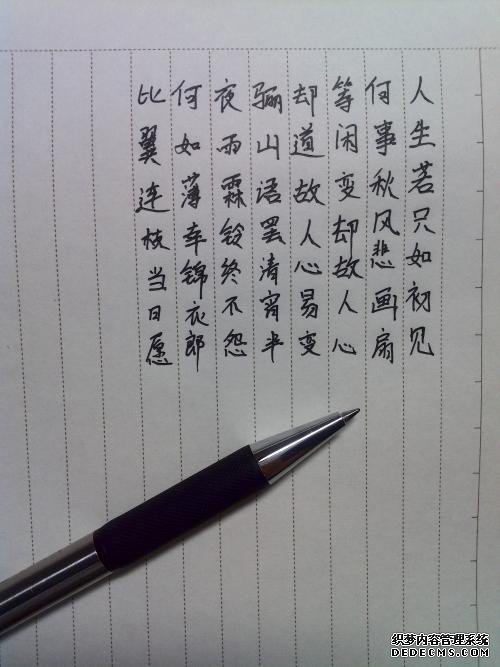 人生若只如初见
何事秋风悲画扇
等闲变却故人心
却道故人心易变
骊山语罢清宵半
夜雨霖铃终不怨
何如薄幸锦衣郎
比翼连枝当日愿
织梦内容管理系统
DEDECMS.COM